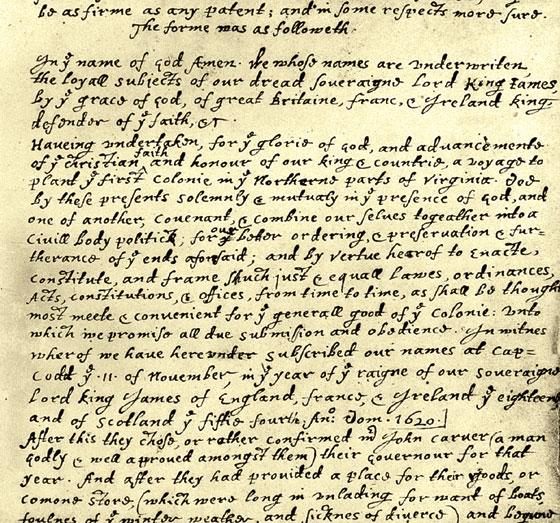 be as firme as any patent; and in some respects more sure.
The forme was as followeth.
In yͤ name of god Amen. We whose names are underwriten,
the loyall subjects of our dread soveraigne Lord King James,
by yͤ grace of god, of great Britaine, franc, & Ireland king,
defender of yͤ faith, &c
Haveing undertaken, for yͤ glorie of god, and advancemente
of yͤ christian faith and honour of our king & countrie, a voyage to
plant yͤ first colonie in yͤ Northerne parts of Virginia. Doe
by these presents solemnly & mutualy in yͤ presence of god, and
one of another, covenant, & combine our selves togeather into a
Civill body politick; for our better ordering, & preservation & fur-
therance of yͤ ends aforsaid; and by vertue hearof to enacte,
constitute, and frame shuch just & equall Lawes, ordinances,
Acts, constitutions, & offices, from time to time, as shall be thought
most meete & convenient for yͤ generall good of yͤ colonie: unto
which we promise all due submission and obedience. In witnes
wherof we have hereunder subscribed our names at Cap-
Codd yͤ .11. of November, in yͤ year of yͤ raigne of our soveraigne
Lord king James of England, france, & Ireland yͤ eighteenth
and of Scotland yͤ fiftie fourth. An͂: Dom. 1620.]
After this they chose, or rather confirmed mͬ John carver (a man
godly & well approved amongst them) their governour for that
year. And after they had provided a place for their goods, or
comone store, (which were long in unlading for want of boats,
foulnes of yͤ winter weather, and sicknes of diverce) and begune